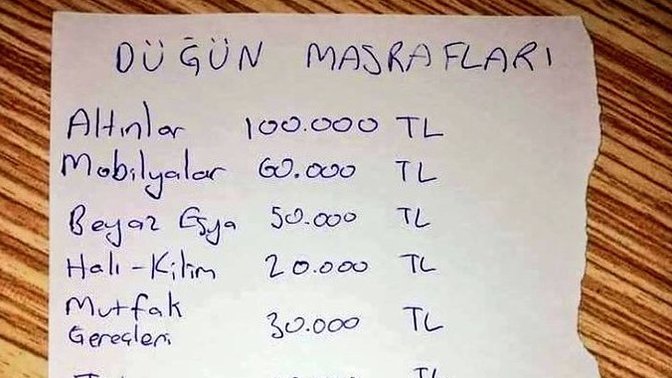 DÜĞÜN MASRAFLARI
Altınlar 100.000 TL
Mobilyalar 60.000 TL
Beyaz Eşya 50.000 TL
Halı-Kilim 20.000 TL
Mutfak
Gereçleri 30.000 TL
TL